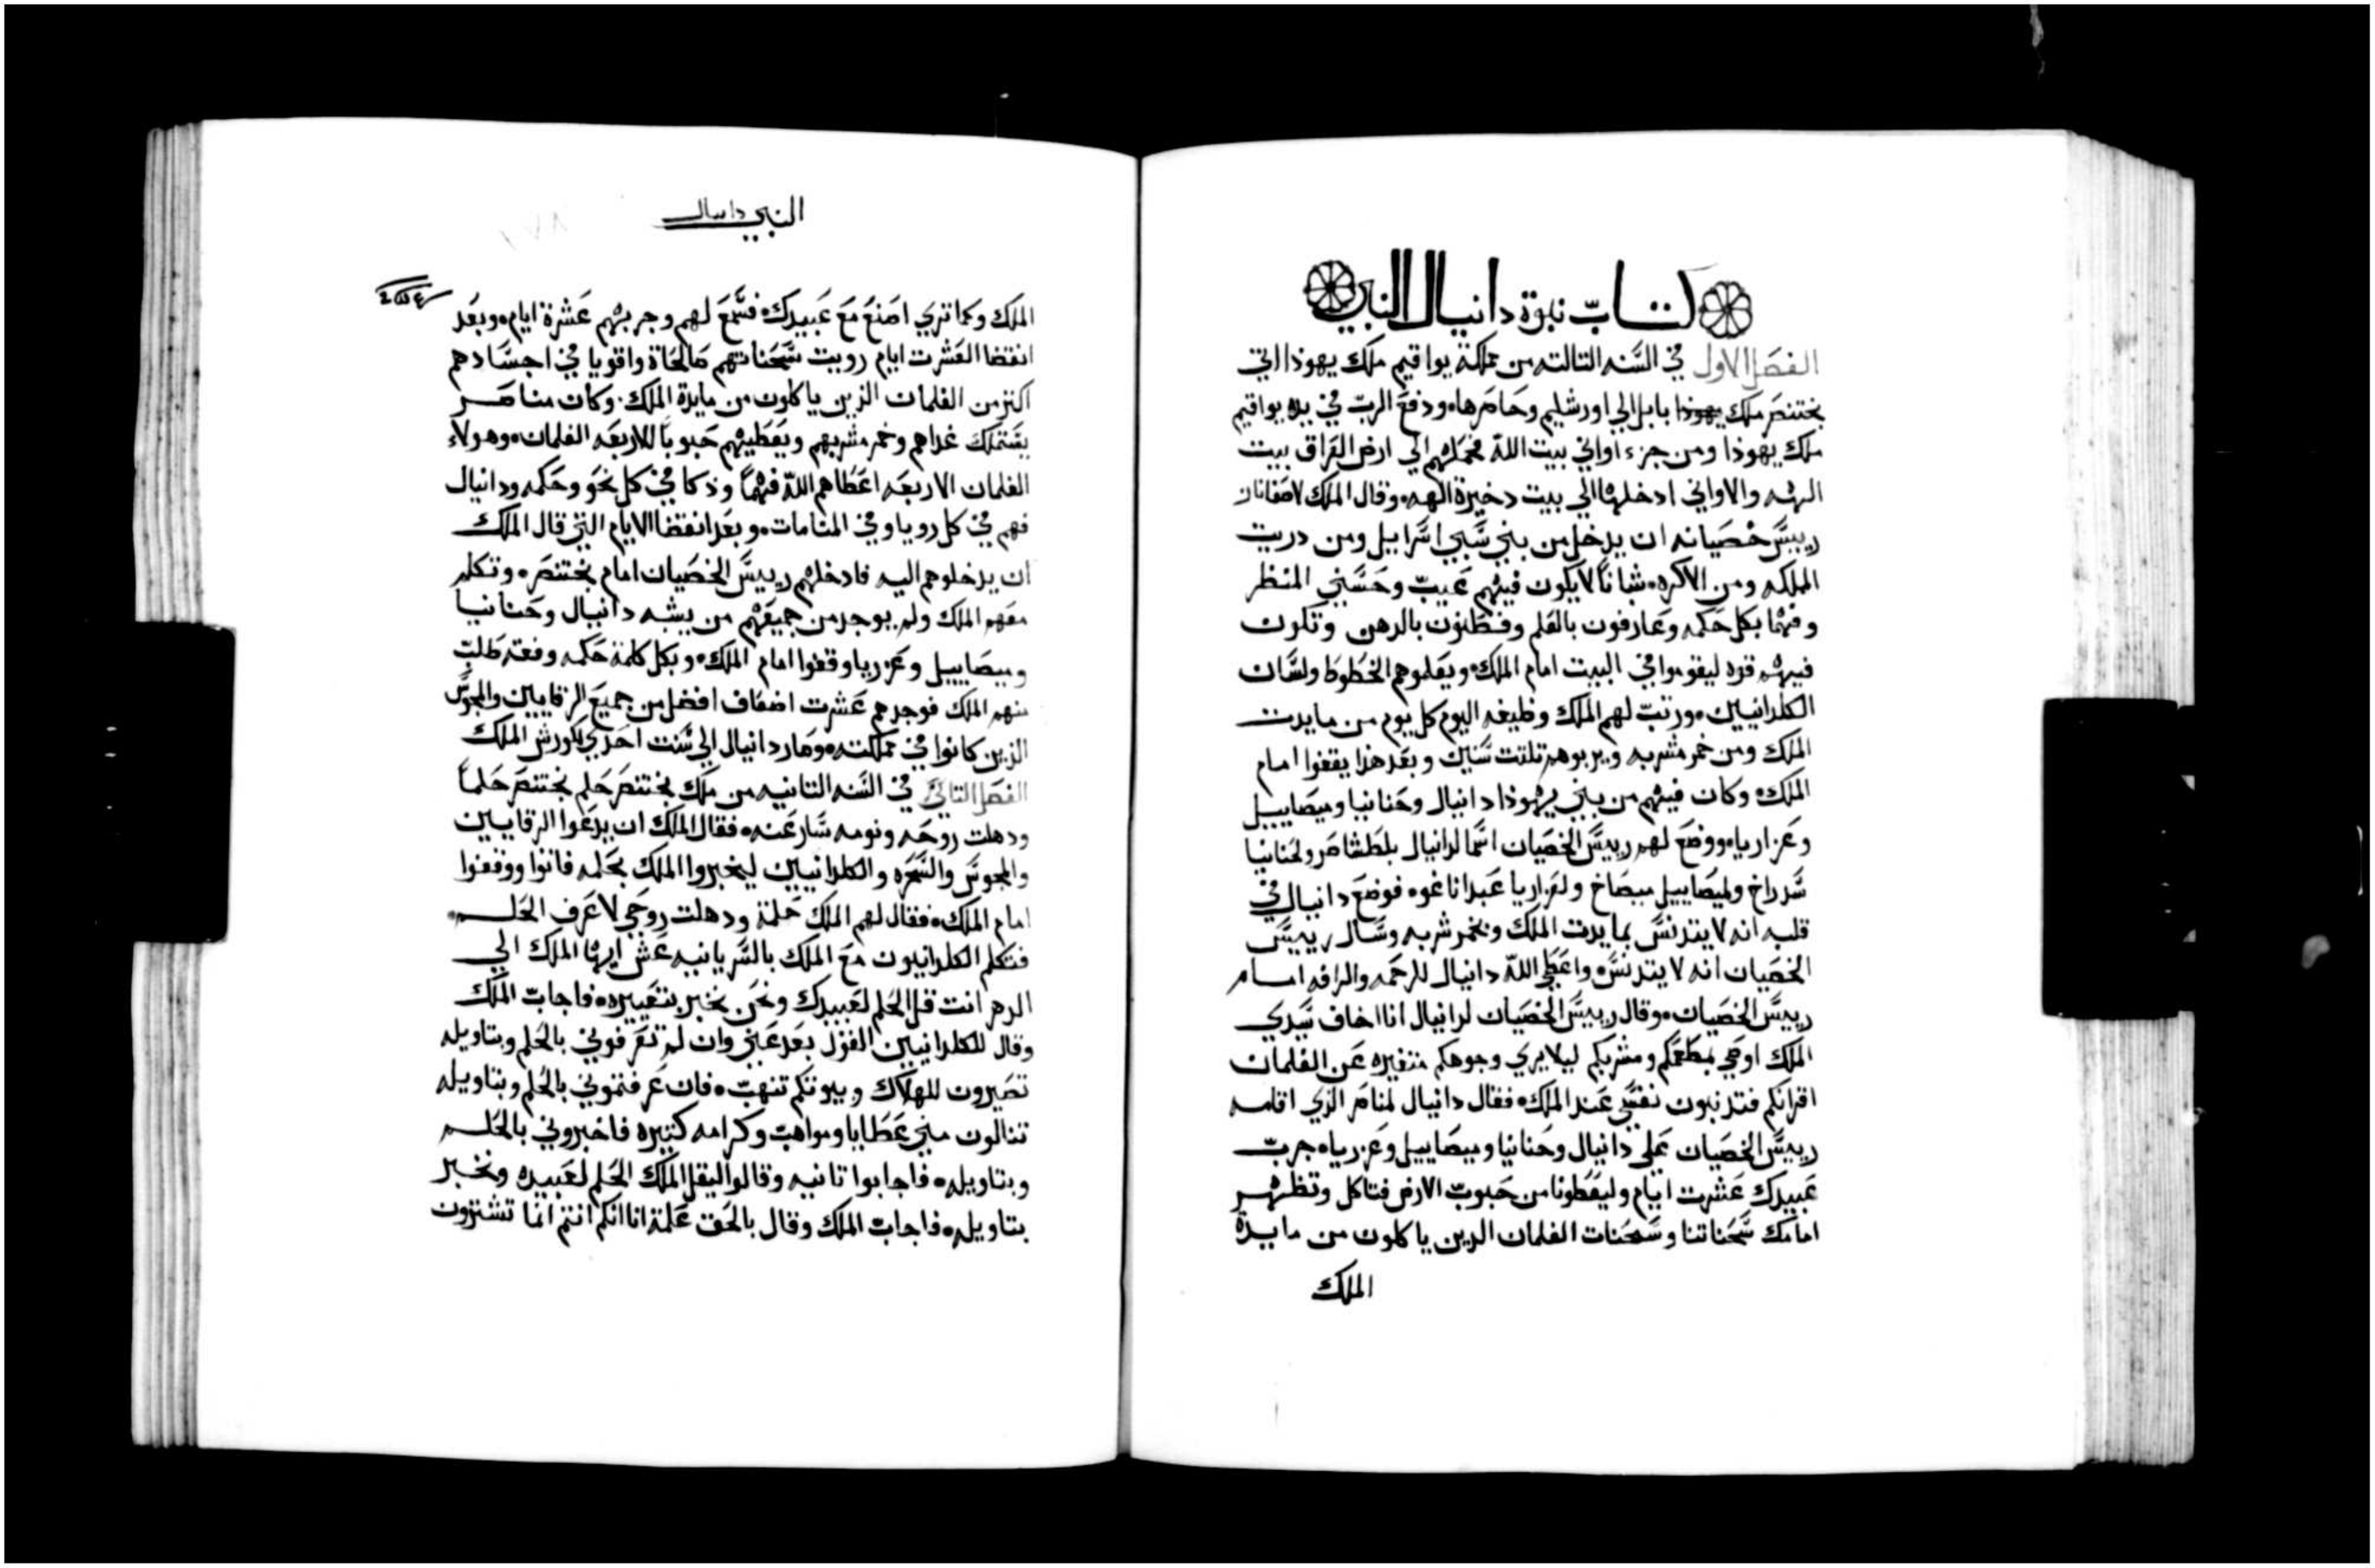 كتاب نبوة دانيال النبي
الفصل الاول في السنه التالته من مملكة يواقيم ملك يهودا اتي
بختنصر ملك يهودا بابل الي اورشليم وحاصرها ودفع الرب في يده يواقيم
ملك يهودا ومن جزء اواني بيت الله فحملهم الي ارض العراق بيت
الهه والاواني ادخلها الي بيت دخيرة الهه وقال الملك لاصفاناز
رييس خصيانه ان يدخل من بني سبي اسراييل ومن دريت
المملكه ومن الاكره شبانا لا يكون فيهم عيب وحسني المنظر
وفهما بكل حكمه وعارفون بالعلم وفطنون بالدهن وتكون
فيهم قوه ليقوموا في البيت امام الملك ويعلموهم الخطوط ولسان
الكلدانيين ورتب لهم الملك وظيفه اليوم كل يوم من مايدت
الملك ومن خمر مشربه ويربوهم تلتت سنين وبعد هذا يقفوا امام
الملك وكان فيهم من بني يهودا دانيال وحنانيا وميصاييل
وعزاريا ووضع لهم رييس الخصيان اسما لدانيال بلطشاصر ولحنانيا
سدراخ ولميصاييل ميصاخ ولعزاريا عبداناغوه فوضع دانيال في
قلبه انه لا يتدنس بمايدت الملك وبخمر شربه وسال رييس
الخصيان انه لا يتدنس واعطي الله دانيال للرحمه والرافه امام
رييس الخصيان وقال رييس الخصيان لدانيال انا اخاف سيدي
الملك اوصي بمطعمكم ومشربكم ليلا يري وجوهكم متغيره عن الغلمان
اقرانكم فتدنبون نفسي عند الملك فقال دانيال لمناصر الذي اقامه
رييس الخصيان علي دانيال وحنانيا وميصاييل وعزريا جرب
عبيدك عشرت ايام وليعطونا من حبوب الارض فتاكل وتظهر
امامك سحناتنا وسحنات الغلمان الدين ياكلون من مايدة
الملك
النبي دانيال
الملك وكما تري اصنع مع عبيدك فسمع لهم وجربهم عشرة ايام وبعد
انقضا العشرت ايام رويت سحناتهم صالحاة واقويا في اجسادهم
اكتر من الغلمان الذين ياكلون من مايدة الملك وكان مناصر
يستملك غداهم وخمر مشربهم ويعطيهم حبوبا للاربعه الغلمان وهولاء
الغلمان الاربعه اعطاهم الله فهما وذكا في كل نحو وحكمه ودانيال
فهم في كل رويا وفي المنامات وبعد انقضا الايام التي قال الملك
ان يدخلوهم اليه فادخلهم رييس الخصيان امام بختنصر وتكلم
معهم الملك ولم يوجد من جميعهم من يشبه دانيال وحنانيا
وميصاييل وعزريا وقفوا امام الملك وبكل كلمة حكمه وفعته طلب
منهم الملك فوجدهم عشرت اضعاف افضل من جميع الرقايين والمجوس
الذين كانوا في مملكته وصار دانيال الي سنت احدي لكورش الملك
الفصل التاني في السنه التانيه من ملك بختنصر حلم بختنصر حلما
ودهلت روحه ونومه سار عنه فقال الملك ان يدعوا الرقايين
والمجوس والسحره والكلدانيين ليخبروا الملك بحلمه فاتوا ووقفوا
امام الملك فقال لهم الملك حلمة ودهلت روحي لاعرف الحلم
فتكلم الكلدانيون مع الملك بالسريانيه عش ايها الملك الي
الدهر انت قل الحلم لعبيدك ونحن نخبر بتعبيره فاجاب الملك
وقال للكلدانيين القول بعد عني وان لم تعرفوني بالحلم وبتاويله
تصيرون للهلاك وبيوتكم تنهب فان عرفتموني بالحلم وبتاويله
تنالون مني عطايا ومواهب وكرامه كتيره فاخبروني بالحلم
وبتاويله فاجابوا تانيه وقالوا ليقل الملك الحلم لعبيده ونخبر
بتاويله فاجاب الملك وقال بالحق علمة انا انكم انتم انما تشترون